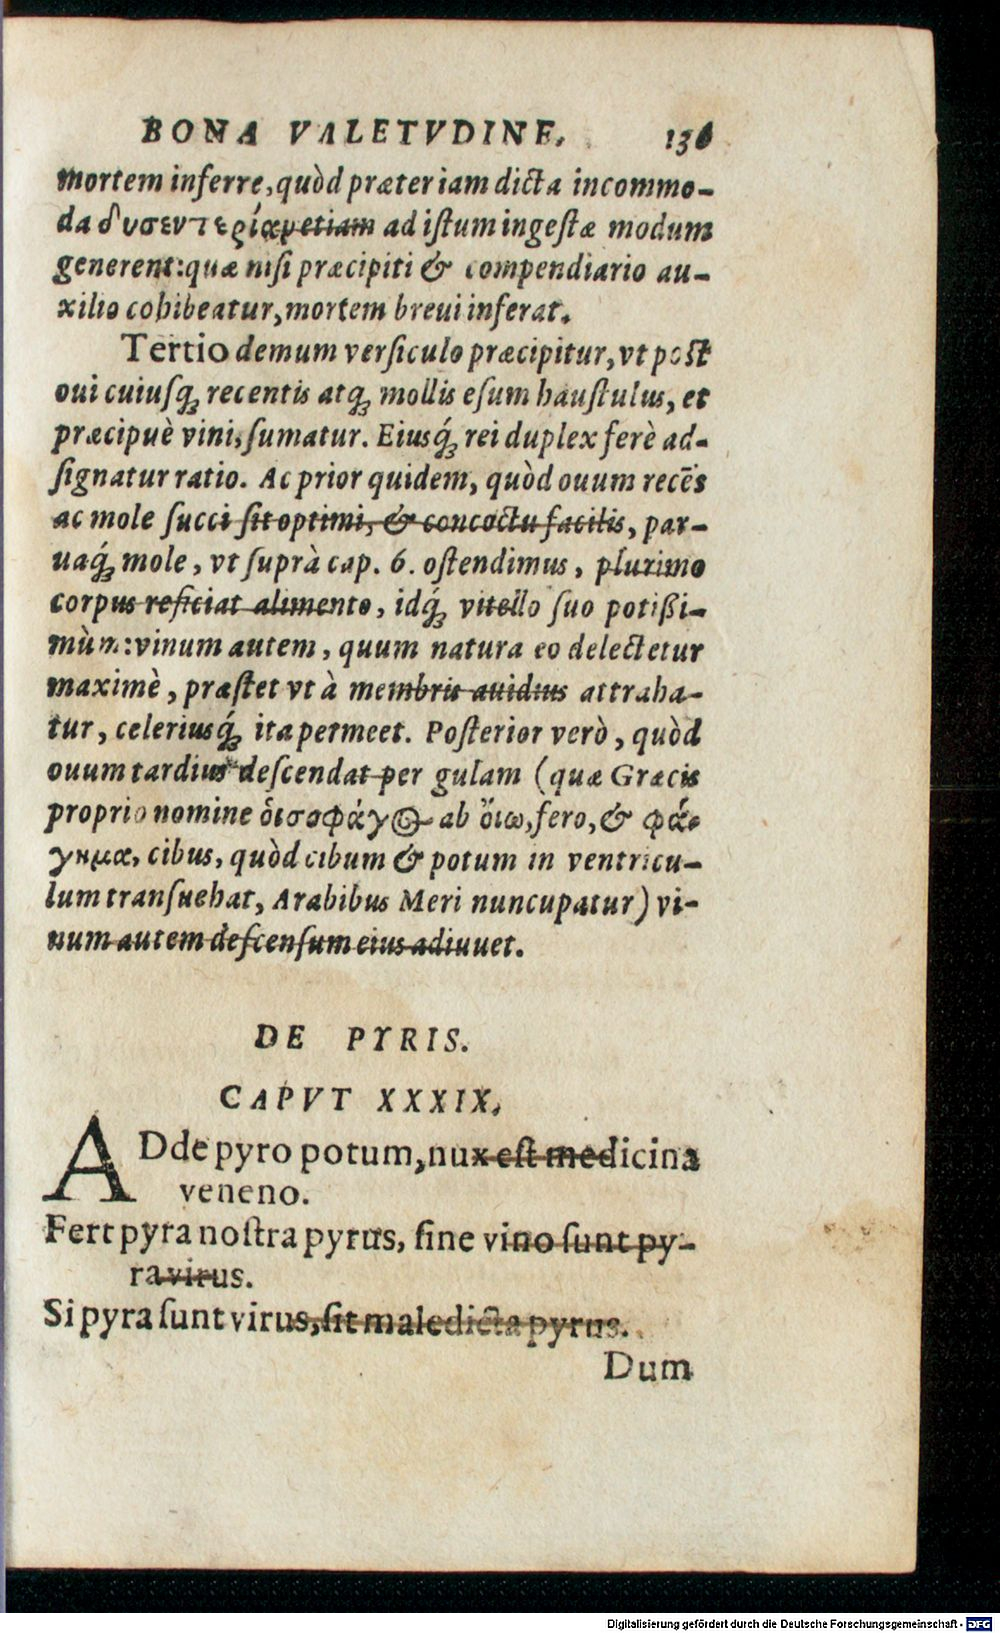 BONA VALETVDINE. 136
mortem inferre, quòd præter iam dicta incommo-
da δυσεντερίαν etiam ad iſtum ingeſtæ modum
generent: quæ niſi præcipiti & compendiario au-
xilio cohibeatur, mortem breui inferat.
Tertio demum verſiculo præcipitur, vt poſt
oui cuiuſq́ꝫ recentis atqꝫ mollis eſum hauſtulus, et
præcipuè vini, ſumatur. Eiusq́ꝫ rei duplex ferè ad-
ſignatur ratio. Ac prior quidem, quòd ouum recēs
ac mole ſucci ſit optimi, & concoctu facilis, par-
uaq́ꝫ mole, vt ſuprà cap. 6. oſtendimus, plurimo
corpus reficiat alimento, idq́ꝫ vitello ſuo potißi-
mùm: vinum autem, quum natura eo delectetur
maximè, præſtet vt à membris auidius attraha-
tur, celeriusq́ꝫ ita permeet. Poſterior verò, quòd
ouum tardius deſcendat per gulam (quæ Græcis
proprio nomine ὀισοφάγος ab ὄιω, fero, & φά-
γημα, cibus, quòd cibum & potum in ventricu-
lum tranſuehat, Arabibus Meri nuncupatur) vi-
num autem deſcenſum eius adiuuet.
DE PYRIS.
CAPVT XXXIX.
ADde pyro potum, nux eſt medicina
veneno.
Fert pyra noſtra pyrus, ſine vino ſunt py-
ra virus.
Si pyra ſunt virus, ſit maledicta pyrus.
Dum
Digitalisierung gefördert durch die Deutsche Forschungsgemeinschaft - DFG